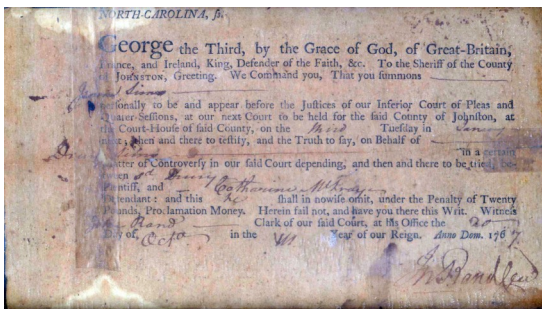 NORTH-CAROLINA, ſs.
George the Third, by the Grace of God, of Great-Britain,
France, and Ireland, King, Defender of the Faith, &c. To the Sheriff of the County
of JOHNSTON, Greeting. We Command you, That you ſummons
Sims
perſonally to be and appear before the Juſtices of our Inferior Court of Pleas and
Quarter-Seſſions, at our next Court to be held for the ſaid County of Johnſton, at
the Court-Houſe of ſaid County, on the third Tueſday in
next; then and there to teſtify, and the Truth to ſay, on Behalf of
in a certain
Matter of Controverſy in our ſaid Court depending, and then and there to be tried, be-
tween sd. Drury
Plaintiff, and Catharine
Defendant: and this he ſhall in nowiſe omit, under the Penalty of Twenty
Pounds, Proclamation Money. Herein fail not, and have you there this Writ. Witneſs
John Rand Clark of our ſaid Court, at his Office the 20
Day of Octo in the Year of our Reign. Anno Dom. 1767.
Jn Rand